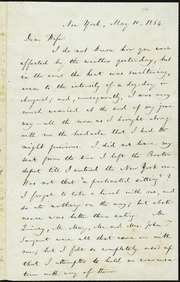 New York, May 10, 1854.
Dear Wife:
I do not know how you were
affected by the weather yesterday, but
in the cars the heat was sweltering,
even to the intensity of a dog-day in
August; and, consequently, I was very
much wilted at the end of my jour-
ney—all the more as I brought along
with me the headache that I had the
night previous. I did not leave my
seat from the time I left the Boston
depot till I entered the New York one.
Was not that a protracted sitting? I
forgot to take a lunch with me, and
ate nothing on the way; but absti-
nence was better than eating. Mr.
Quincy, Mr. May, Mr. and Mrs. John
Sargent were all that came on with
me; but I felt so completely used up
that I attempted to hold no conversa-
tion with any of them.